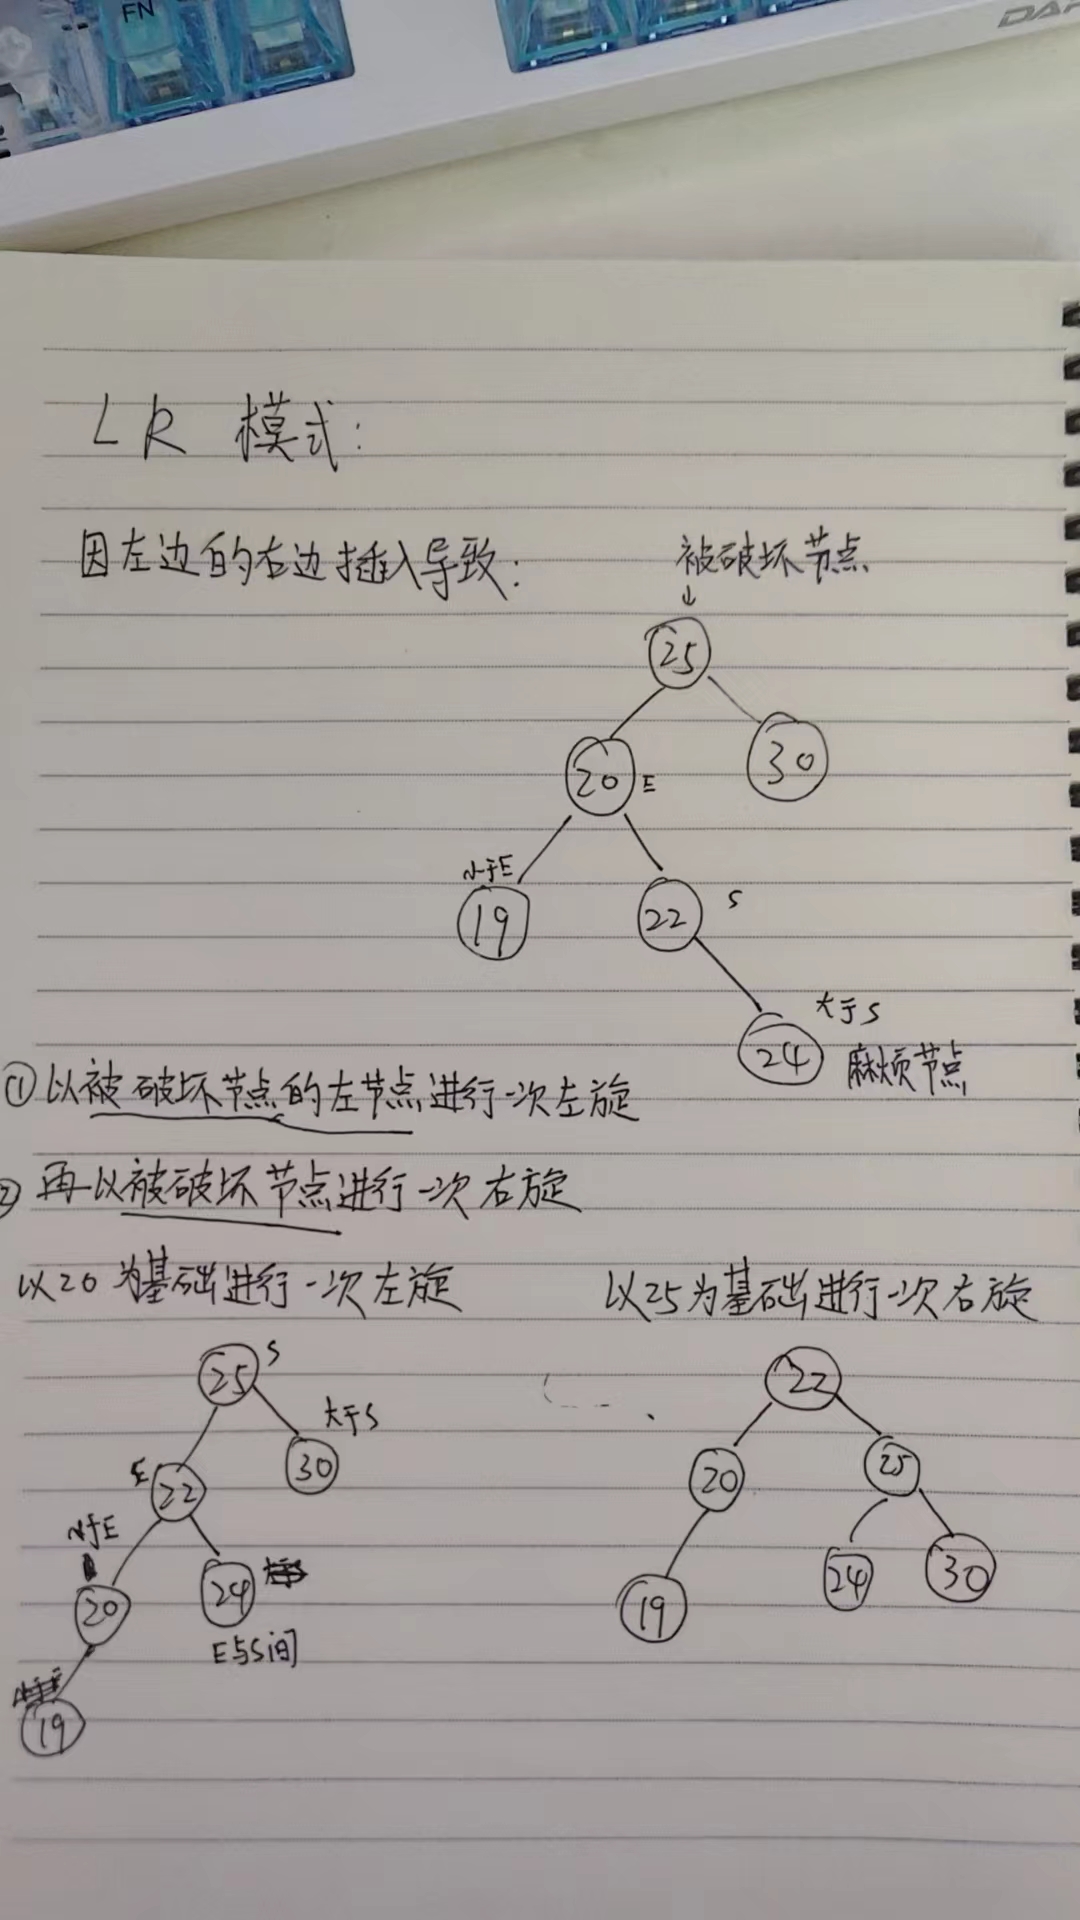 FN
LR 模式:
因左边的右边插入导致:
被破坏节点
↓
25
20 E
30
小于E
19
22 S
大于S
24 麻烦节点
①以被破坏节点的左节点进行一次左旋
②再以被破坏节点进行一次右旋
以20为基础进行一次左旋
以25为基础进行一次右旋
25 S
大于S
30
E
22
小于E
20
24
E与S间
19
22
20
25
19
24
30